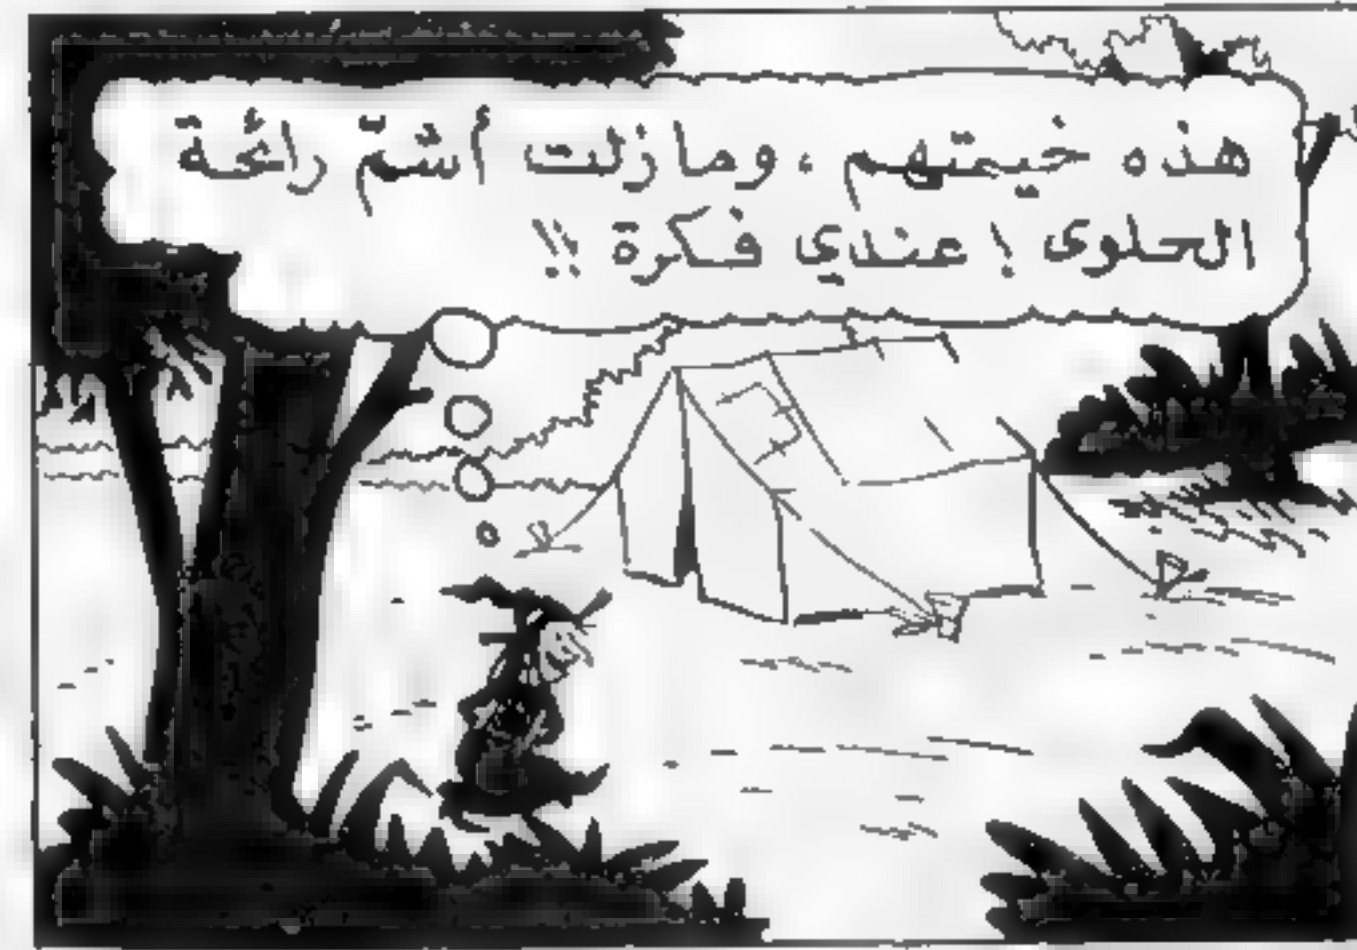 هذه خيمتهم ، وما زلت أشمّ رائحة
الحلوى ! عندي فكرة !!